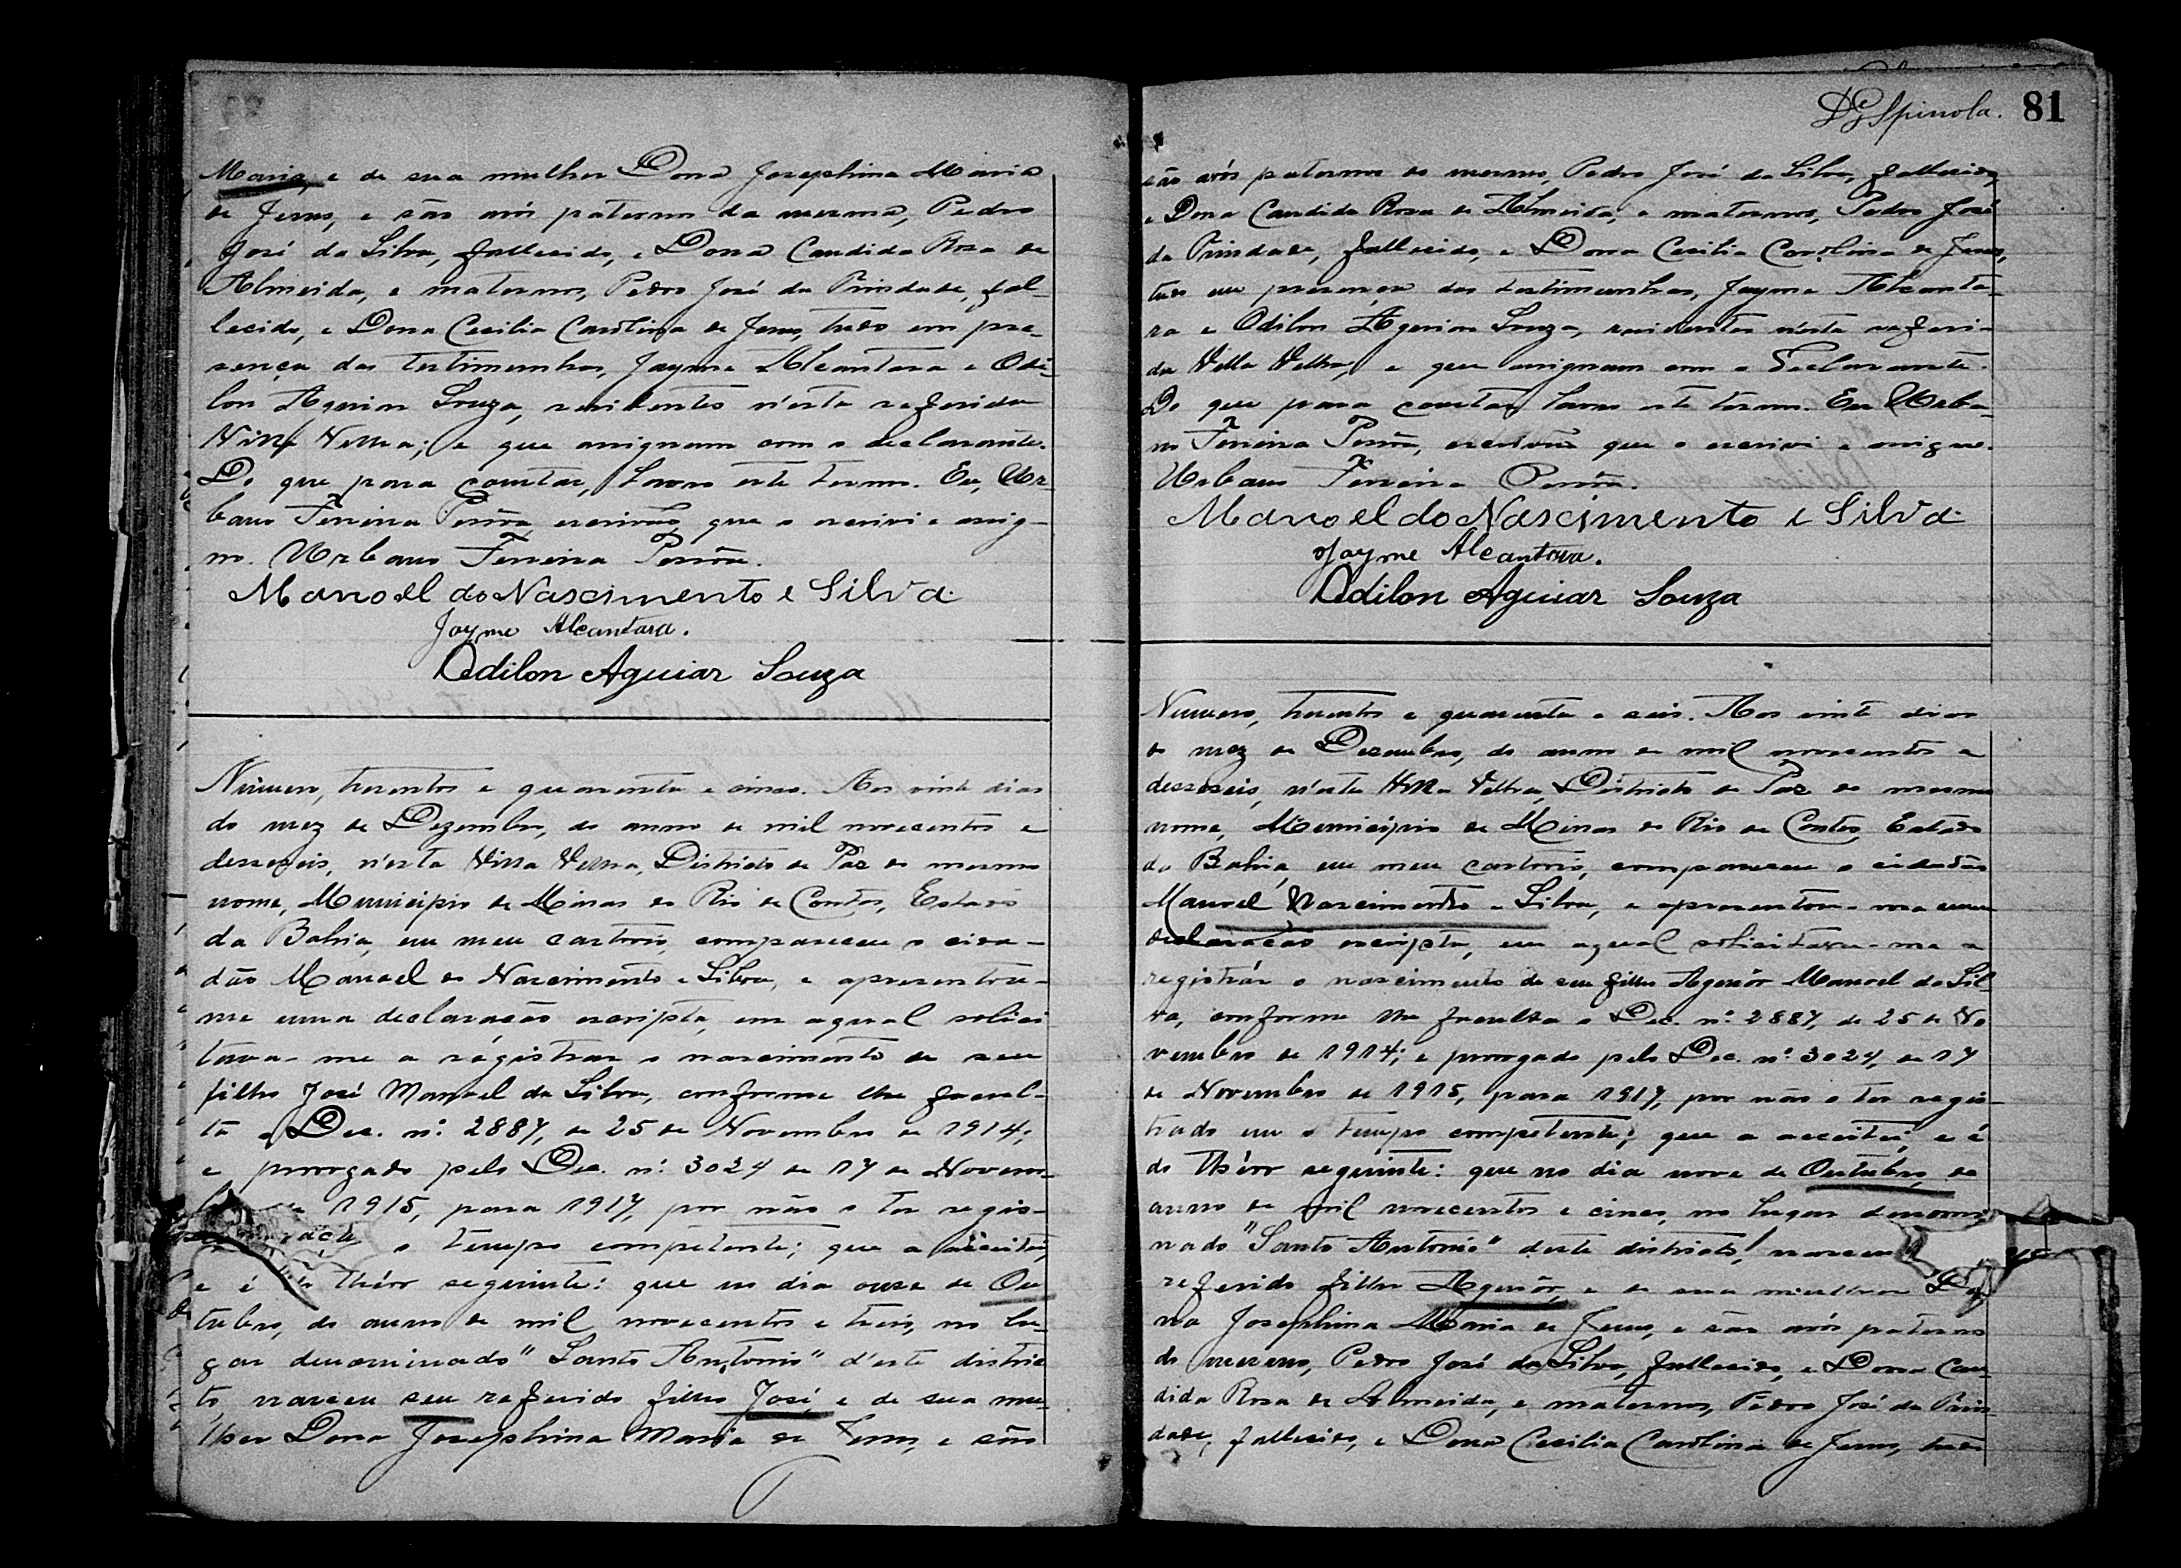 Maria, e de sua mulher Dona Josephina Maria
de Jesus, e são avós paternos da mesma, Pedro
José da Silva, fallecido, e Dona Candida Rosa de
Almeida, e maternos, Pedro José da Trindade, fal-
lecido, e Dona Cecilia Carolina de Jesus, tudo em pre-
sença das testimunhas, Jayme Alcantara e Odi-
lon Aguiar Souza, residentes n'esta referida
Villa Velha; e que assignam com o declarante.
Do que para constar, lavro este termo. Eu, Ur-
bano Ferreira Pessôa escrivão, que o escrivi e assig-
no. Urbano Ferreira Pessôa.
Manoel do Nascimento e Silva
Jayme Alcantara.
Odilon Aguiar Souza
Numero, trezentos e quarenta e cinco. Aos vinte dias
do mez de Dezembro, do anno de mil novecentos e
desseseis, n'esta Villa Velha, Districto de Paz do mesmo
nome, Municipio de Minas do Rio de Contas, Estado
da Bahia, em meu cartorio, compareceu o cida-
dão Manoel do Nascimento e Silva, e apresentou-
me uma declaração escripta, em a qual solici
tava-me a registrar o nascimento de seu
filho José Manoel da Silva, conforme lhe facul-
ta o Dec. nº 2887, de 25 de Novembro de 1914;
e prorogado pelo Dec. nº 3024 de 17 de Novem-
de 1915, para 1917, por não o ter regis-
o tempo competente; que a acceitei,
e é do theôr seguinte: que no dia onze de Ou
tubro, do anno de mil novecentos e treis, no lu-
gar denominado "Santo Antonio" d'este distric
to, nasceu seu referido filho José, e de sua mu-
lher Dona Josephina Maria de Jesus, e são
D G Spinola. 81
são avós paternos do mesmo, Pedro José da Silva, fallecido,
e Dona Candida Rosa de Almeida, e maternos, Pedro José
da Trindade, fallecido, e Dona Cecilia Carolina de Jesus,
tudo em presença das testimunhas, Jayme Alcanta-
ra e Odilon Aguiar Souza, residentes n'esta referi-
da Villa Velha; e que assignam com o declarante.
Do que para constar, lavro este termo. Eu Urba-
no Ferreira Pessôa, escrivão que o escrivi e assigno.
Urbano Ferreira Pessôa.
Manoel do Nascimento e Silva
Jayme Alcantara.
Odilon Aguiar Souza
Numero, trezentos e quarenta e seis. Aos vinte dias
do mez de Dezembro, do anno de mil novecentos e
desseseis, n'esta Villa Velha, Districto de Paz do mesmo
nome, Municipio de Minas do Rio de Contas, Estado
da Bahia, em meu cartorio, compareceu o cidadão
Manoel Nascimento e Silva, e apresentou-me uma
declaração escripta, em a qual solicitava-me a
registrár o nascimento de seu filho Agenôr Manoel da Sil-
va, conforme lhe faculta o Dec. nº 2887, de 25 de No
vembro de 1914; e prorogado pelo Dec. nº 3024, de 17
de Novembro de 1915, para 1917, por não o ter regis-
trado em o tempo competente; que a acceitei, e é
do theôr seguinte: que no dia nove de Outubro, do
anno de mil novecentos e cinco, no lugar denomi
nado "Santo Antonio" deste districto, nasceu
referido filho Agenôr, e de sua mulher Do
na Josephina Maria de Jesus, e são avós paternos
do mesmo, Pedro José da Silva, fallecido, e Dona Can-
dida Rosa de Almeida, e maternos, Pedro José da Trin-
dade, fallecido, e Dona Cecilia Carolina de Jesus, tudo